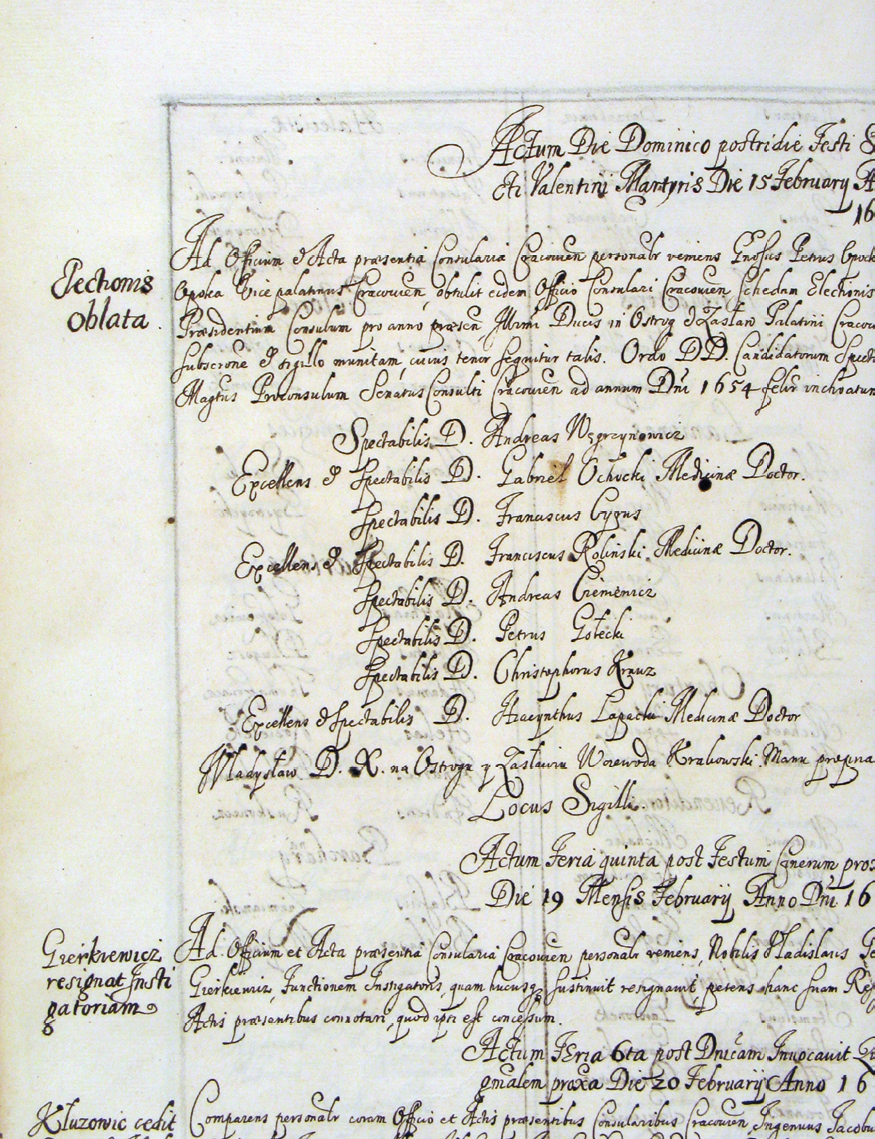 Actum Die Dominico postridie Festi S
cti Valentini Martyris Die 15 February A
16
Electionis
oblata.
Ad Officium et Acta præsentia Consularia Cracouien personalr veniens Gnosus Petrus Opock
Opoka Vice palatinus Cracouien, obtulit eidem Officio Consulari Cracouien Schedam Electionis
Præsidentium Consulum pro anno præsen Illrmi Ducis in Ostrog et Zasław Palatini Cracou
subscrone et sigillo munitam, cuius tenor sequitur talis. Ordo DD. Candidatorum Specta
Magtus Proconsulum Senatus Consulti Cracouien ad annum Dni 1654 felir inchoatum
Spectabilis D. Andreas Węgrzynowicz
Excellens et Spectabilis D. Gabriel Ochocki Medicinæ Doctor.
Spectabilis D. Franciscus Cygnus
Excellens et Spectabilis D. Franciscus Roliński Medicinæ Doctor.
Spectabilis D. Andreas Cieniewicz
Spectabilis D. Petrus Gołecki
Spectabilis D. Christophorus Krauz
Excellens et Spectabilis D. Hyacynthus Łapacki Medicinæ Doctor
Władysław D. X. na Ostrogu y Zasławiu Woiewoda Krakowski Manu propria
Locus Sigilli.
Actum Feria quinta post Festum Cinerum prox
Die 19 Mensis February Anno Dni 16
Gierkiewicz
resignat Insti
gatoriam
Ad Officium et Acta præsentia Consularia Cracouien personalr veniens, Nobilis Vladislaus
Gierkiewicz, Functionem Instigatoris, quam hucusq sustinuit resignavit, petens hanc suam
Actis præsentibus connotari, quod ipsi est concessum.
Actum Feria 6ta post Dnicam Invocavit
gmalem proxa Die 20 February Anno 16
Kluzowic cedit
Comparens personalr coram Officio et Actis præsentibus Consularibus Cracouien, Ingenuus Jacobu